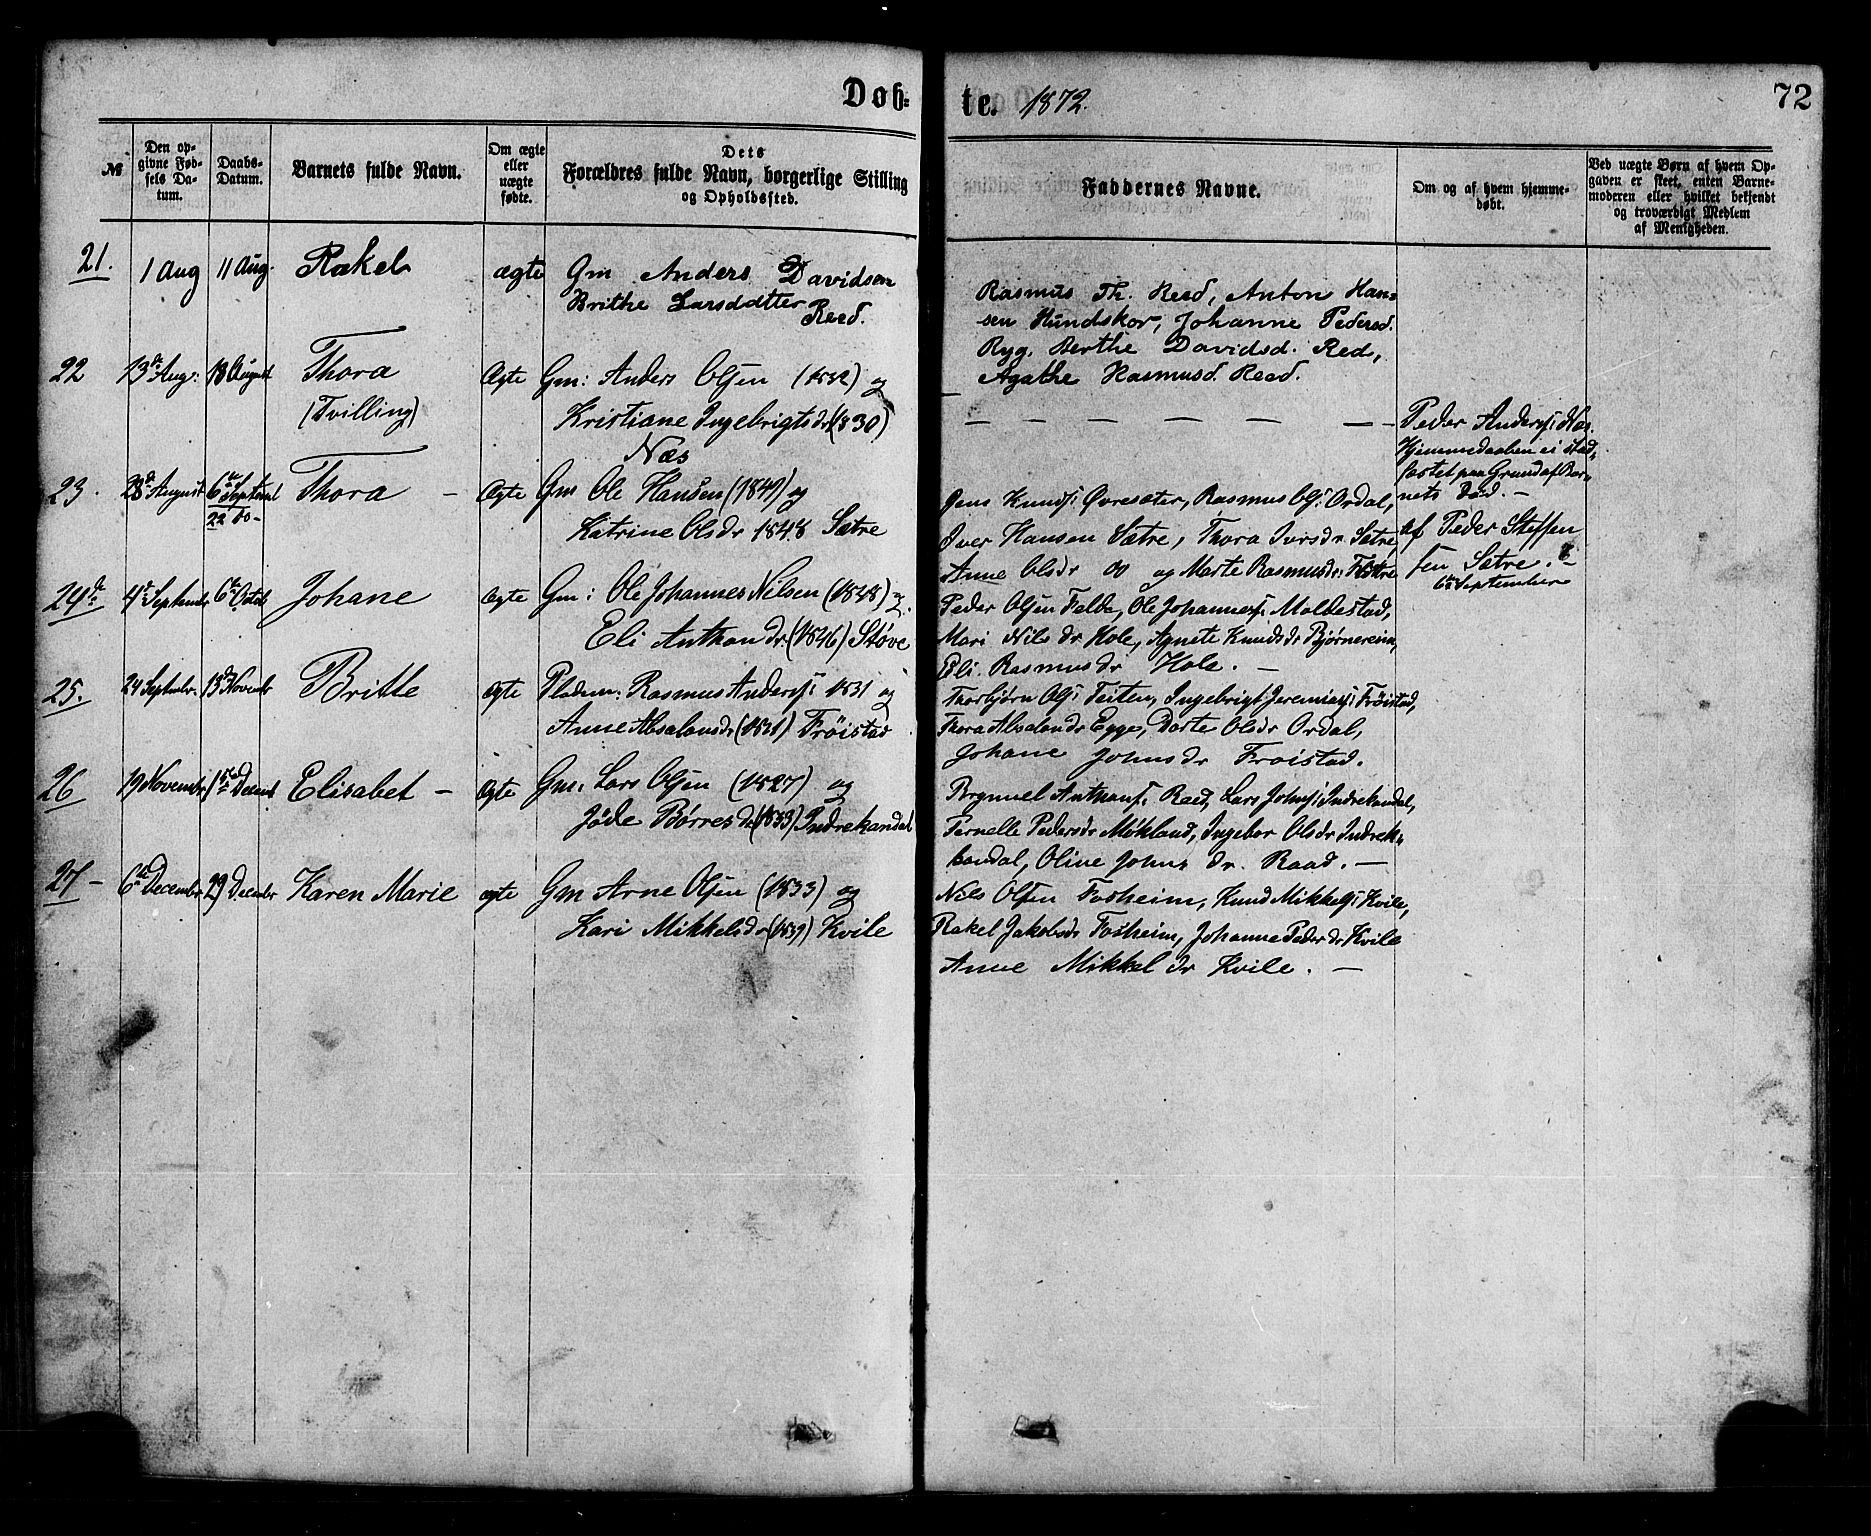 Døb=
te. 1872.
72
№
Den op-
givne Fød-
sels Da-
tum.
Daabs-
Datum.
Barnets fulde Navn.
Om ægte
eller
uægte
fødte.
Dets
Forældres fulde Navn, borgerlige Stilling
og Opholdssted.
Faddernes Navne.
Om og af hvem hjemme-
døbt.
Ved uægte Børn af hvem Op-
gaven er skeet, enten Barne-
moderen eller hvilket bekjendt
og troværdigt Medlem
af Menigheden.
21. 1 Aug 11 Aug. Rakel ægte Gm Anders Davidsen
Brithe Larsdatter
Reed.
Rasmus Th. Reed, Anton Han-
sen Hundskor, Johanne Pedersd.
Ryg. Berthe Davidsd. Red,
Agathe Rasmusd. Reed.
22 13de Aug: 18 August Thora Ægte Gm: Anders Olsen og
(Tvilling) Kristiane Ingebrigtsdr (1830)
Næs
— — — — — —
Peder Anders: Næs.
Hjemmedaaben ei stad-
fæstet paa Grund af Bar-
nets Død. —
23. 28d August 6te September Thora — Ægte Gm Ole Hansen (1849) og
22 do — Katrine Olsdr 1848 Sætre
Jens Knuds: Øvresæter, Rasmus Ols: Ordal,
Iver Hansen Sætre, Thora Iversdr Sætre,
Anne Olsdr do og Marte Rasmusdr:
af Peder Steffen
sen Sætre. —
6te September
24de 4de September 6te Octob Johane Ægte Gm: Ole Johannes Nilsen (1848) og
Eli Anthondr. (1846) Støve
Peder Olsen Felde, Ole Johannes: Moldestad,
Mari Nilsdr Hole, Agnete Knudsdr Bjørnereim,
Eli Rasmusdr Hole. —
25. 24 Septembr. 13de Novembr Britte Ægte Pladsm: Rasmus Anders: 1831 og
Anne Absalonsdr Frøistad
Thorbjørn Ols: Teiten, Ingebrigt Jeremias: Frøistad,
Thora Absalondr Egge, Dorte Olsdr Ordal,
Johane Johnsdr Frøistad.
26 19 Novembr 15de Decemb Elisabet — Ægte Gm: Lars Olsen (1827) og
Jøde Børresdr (1833) Indrekandal
Brynnel Anthons: Raad, Lars Johns: Indrekandal,
Pernelle Pedersdr Møkland, Ingebor Olsdr Indrek-
kandal, Oline Johnsdr. Raad. —
27 — 6te Decembr 29 Decembr Karen Marie ægte Gm Arne Olsen (1833) og
Kari Mikkelsdr (1839) Kvile
Nils Olsen Fosheim, Knud Mikkels: Kvile,
Rakel Jakobsdr Fosheim, Johanne Pederdr Kvile
Anne Mikkeldr Kvile. —